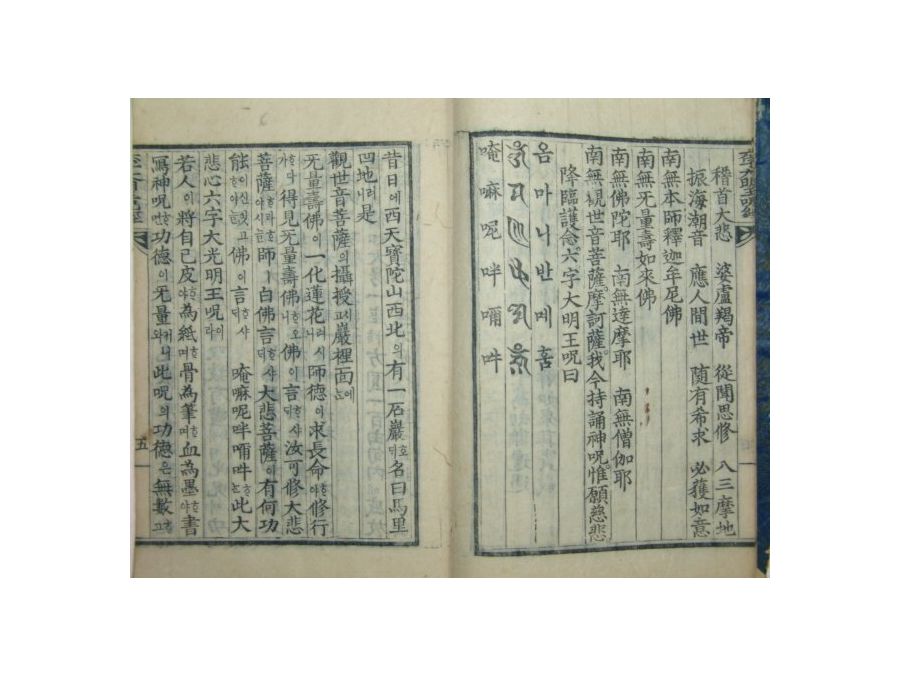 稽首大悲 婆盧羯帝 從聞思修 入三摩地
振海潮音 應人間世 隨有希求 必獲如意
南無本師釋迦牟尼佛
南無无量壽如來佛
南無佛陀耶 南無達摩耶 南無僧伽耶
南無觀世音菩薩摩訶薩我今持誦神呪惟願慈悲
降臨護念 六字大明王呪曰
옴 마 니 반 메 훔
唵 嘛 呢 吽
昔日에西天寶陀山西北의有一石巖호名曰馬里
凹地니是
觀世音菩薩의攝授시巖裡面에
无量壽佛이一化蓮花시師德이求長命야修行
가다得見无量壽佛니佛이言샤汝可修大悲
菩薩라師ㅣ白佛言샤大悲菩薩이有何功
能이고佛이言샤 唵嘛呢 此大
悲心六字大光明王呪라
若人이將自己皮야為紙며骨為筆며血為墨야書
寫神呪면功德이无量와此呪의功德은無數고
五